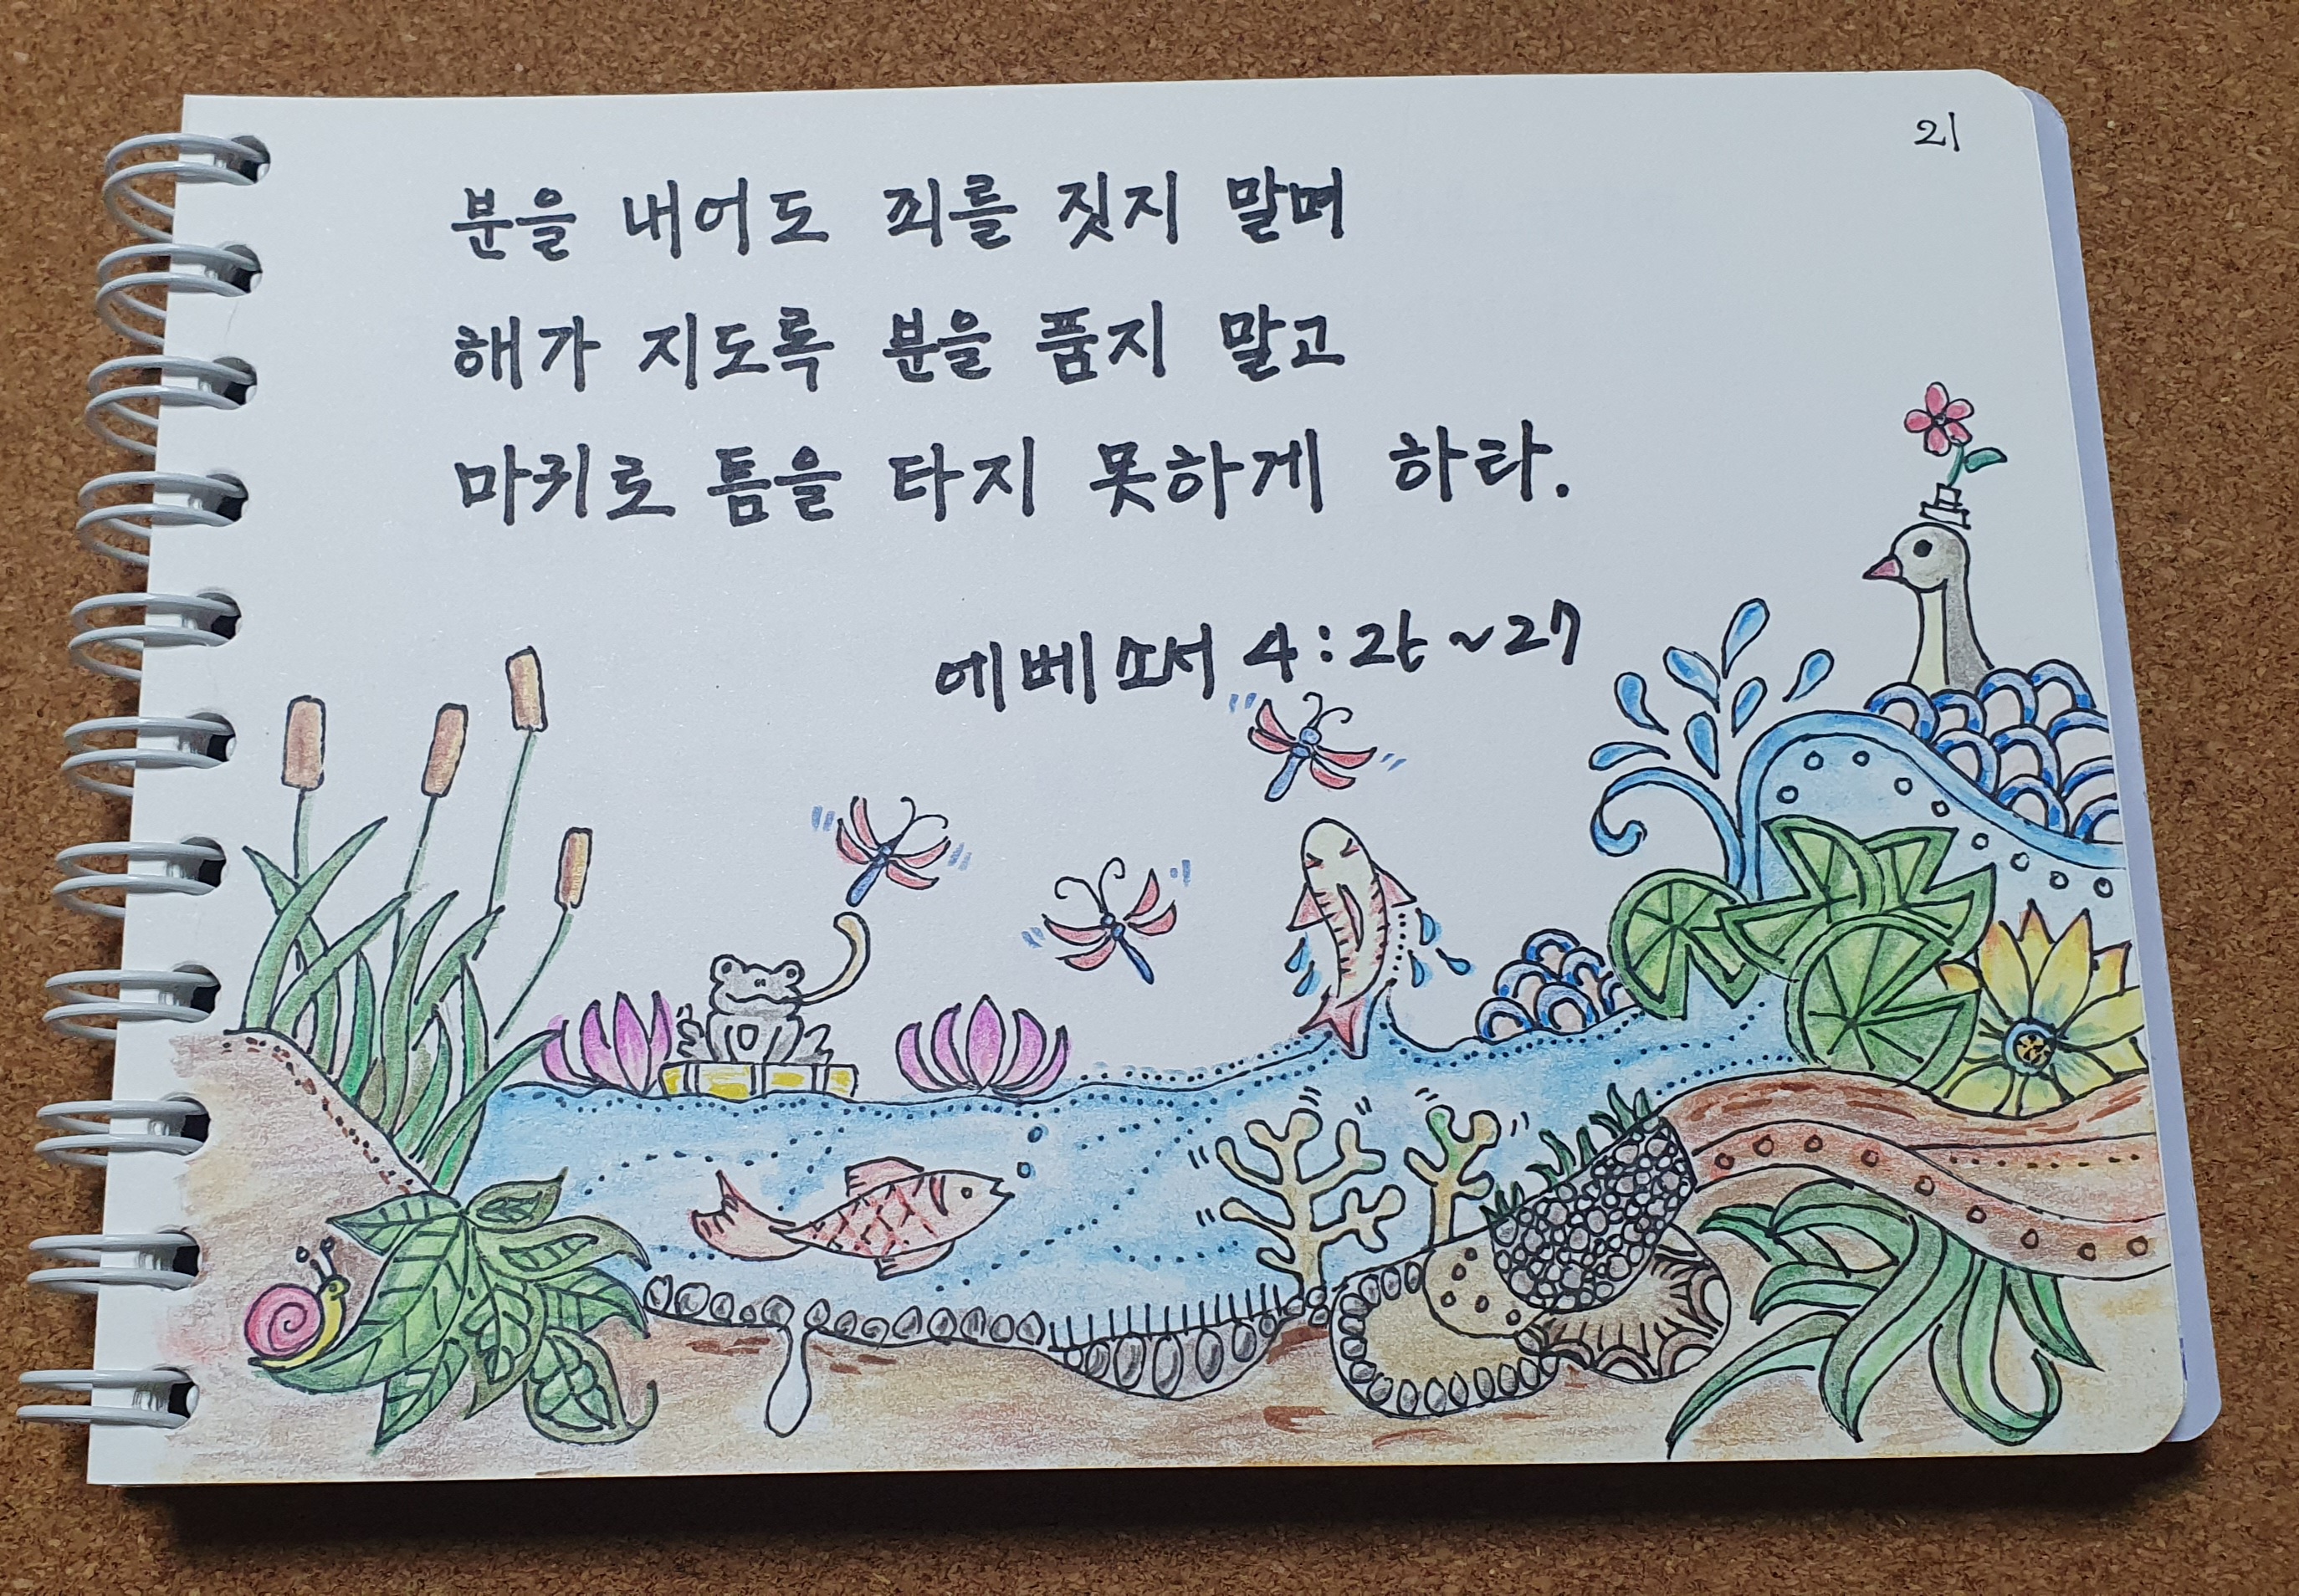 21
분을 내어도 죄를 짓지 말며
해가 지도록 분을 품지 말고
마귀로 틈을 타지 못하게 하라.
에베소서 4:26~27